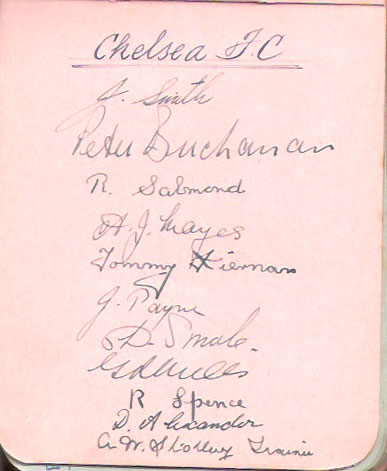 Chelsea F.C
J. Smith
Peter Buchanan
R. Salmond
A. J. Mayes
Tommy Kiernan
J. Payne
D. Smale.
G D Mills
R Spence
D. Alexander
A. W. Trainer